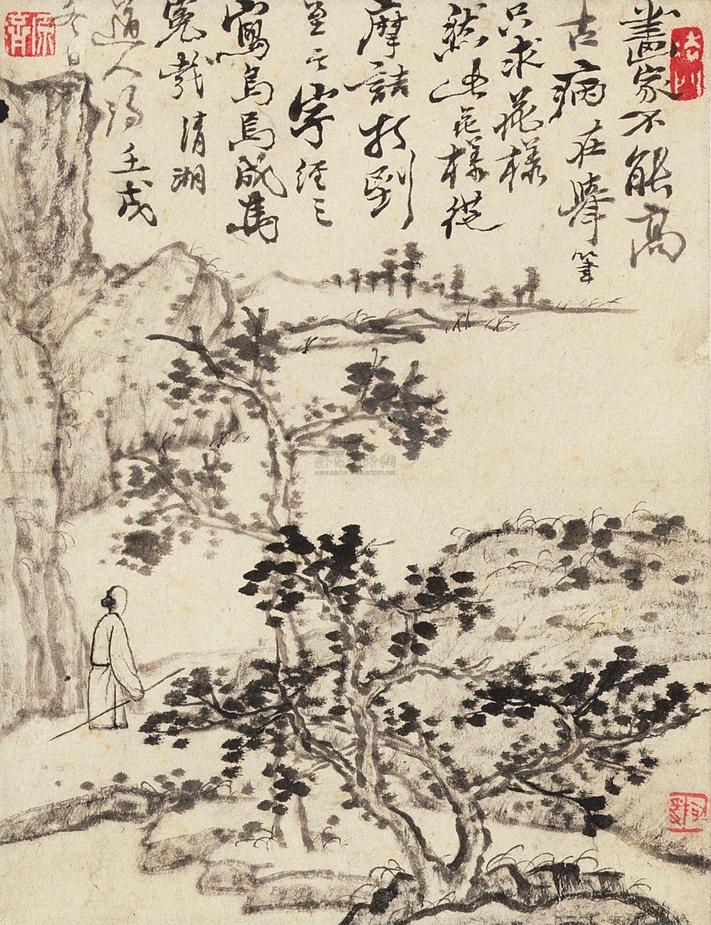 畫家不能高
古病在舉筆
只求花樣
然此花樣從
摩詰打到
至今字經三
寫烏焉成馬
冤哉清湘
道人壬戌
冬日